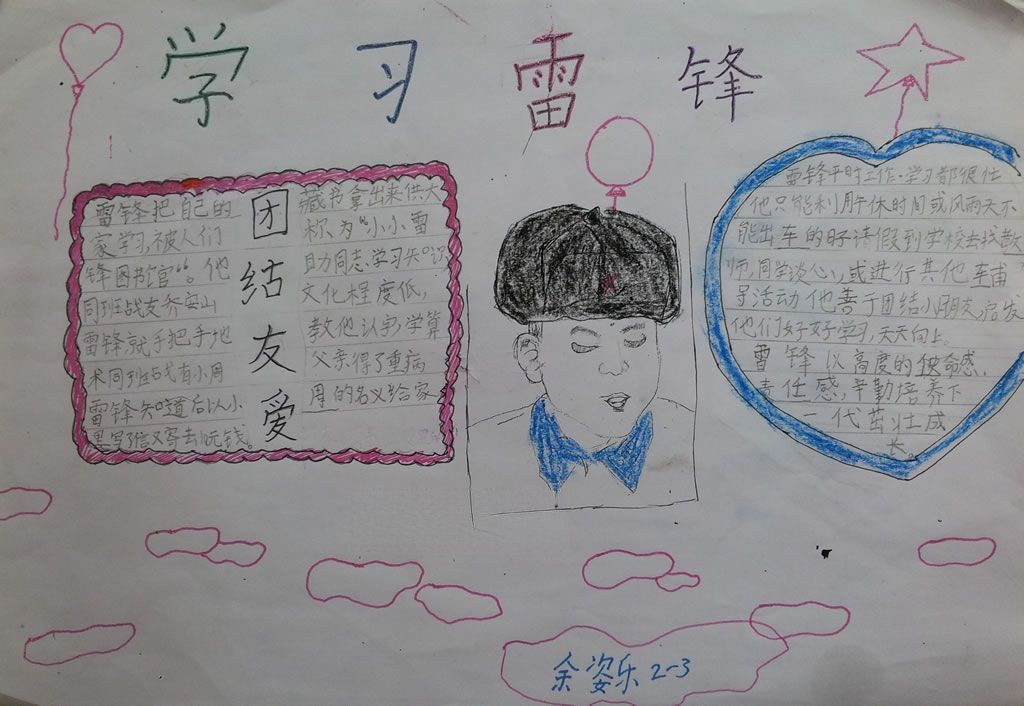 学习雷锋
团结友爱
雷锋把自己的
藏书拿出来供大
家学习,被人们
称为“小小雷
锋图书馆”。他
助同志,学习知识,
同班战友乔安山
文化程度低,
雷锋就手把手地
教他认字,学算
术同班战有小周
父亲得了重病
雷锋知道后以小
周的名义给家
里写了信又寄去10元钱。
雷锋平时工作·学习都很忙
他只能利用午休时间或风雨天不
能出车的时请假到学校去找教
师,同学谈心,或进行其他辅
导活动他善于团结小朋友,启发
他们好好学习,天天向上。
雷锋以高度的使命感,
责任感,辛勤培养下
一代茁壮成
长。
余姿乐2-3